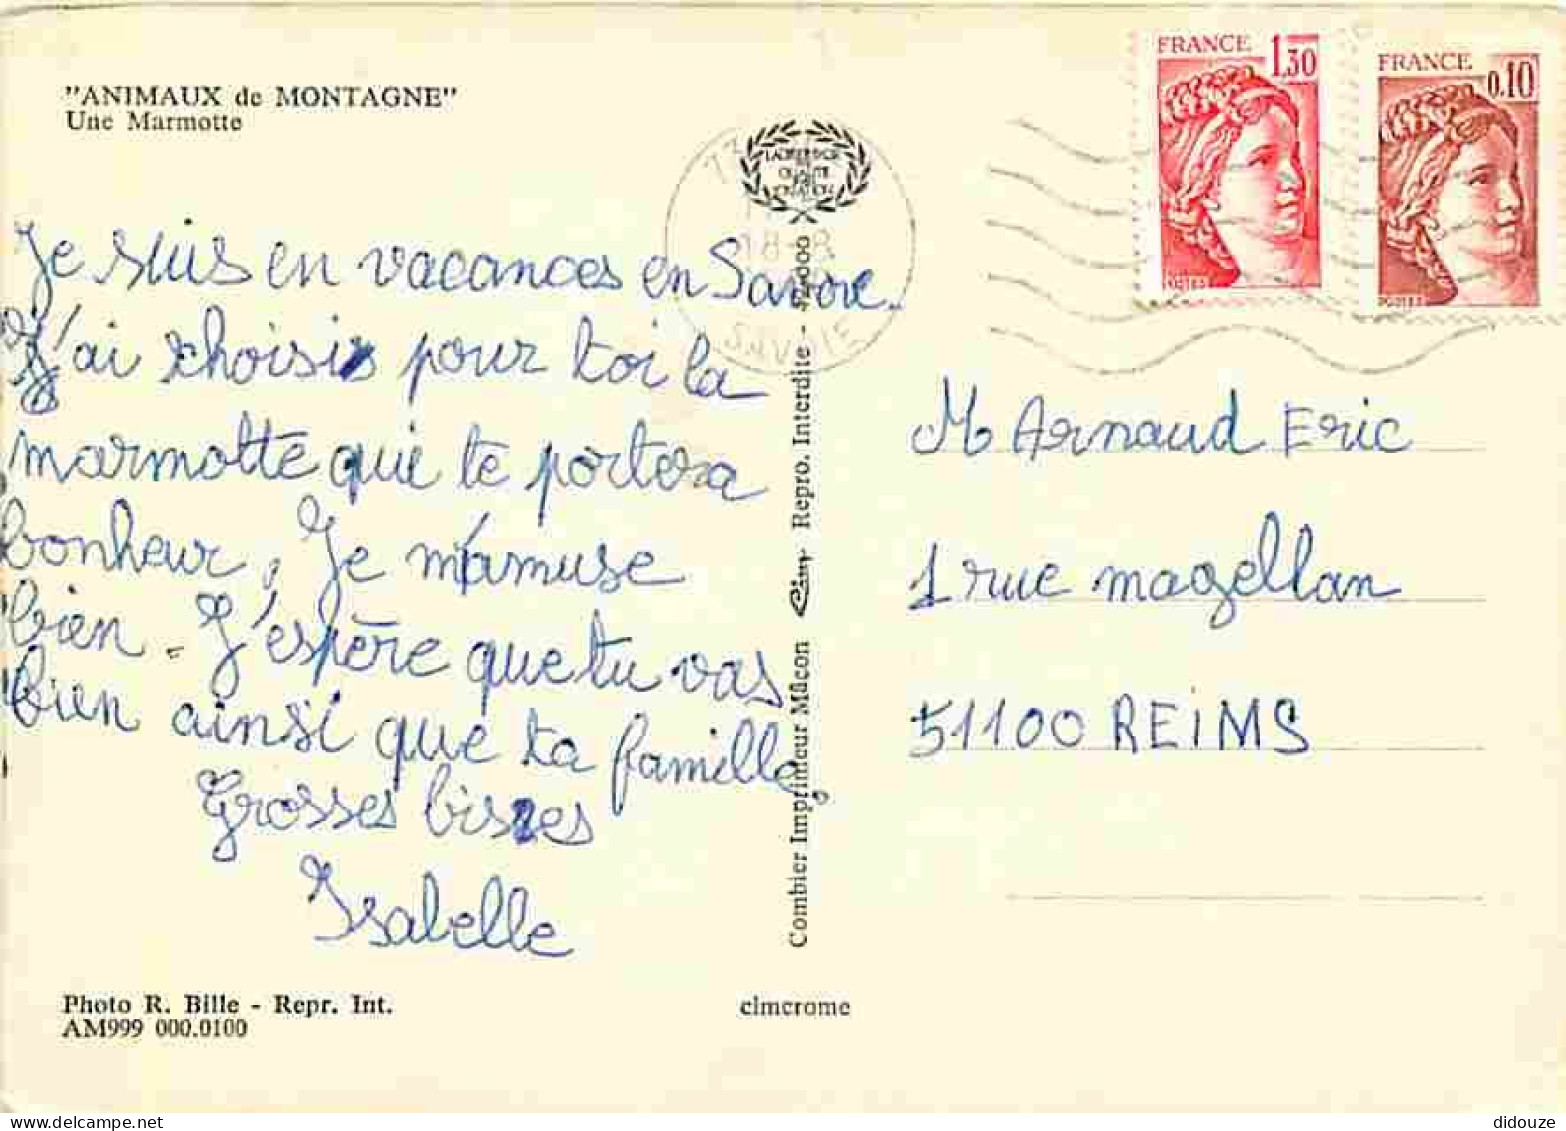 "ANIMAUX de MONTAGNE"
Une Marmotte
FRANCE 1,30
POSTES
FRANCE 0,10
POSTES
18-8
SAVOIE
Je suis en vacances en Savoie.
J'ai choisis pour toi la
marmotte qui te portera
bonheur, Je m'amuse
bien. J'espère que tu vas
bien ainsi que ta famille,
Grosses bises
Isabelle
M Arnaud Eric
1 rue magellan
51100 REIMS
Combier Imprimeur Mâcon Cim Repro. Interdite -
Photo R. Bille - Repr. Int.
AM999 000.0100
cimcrome
didouze